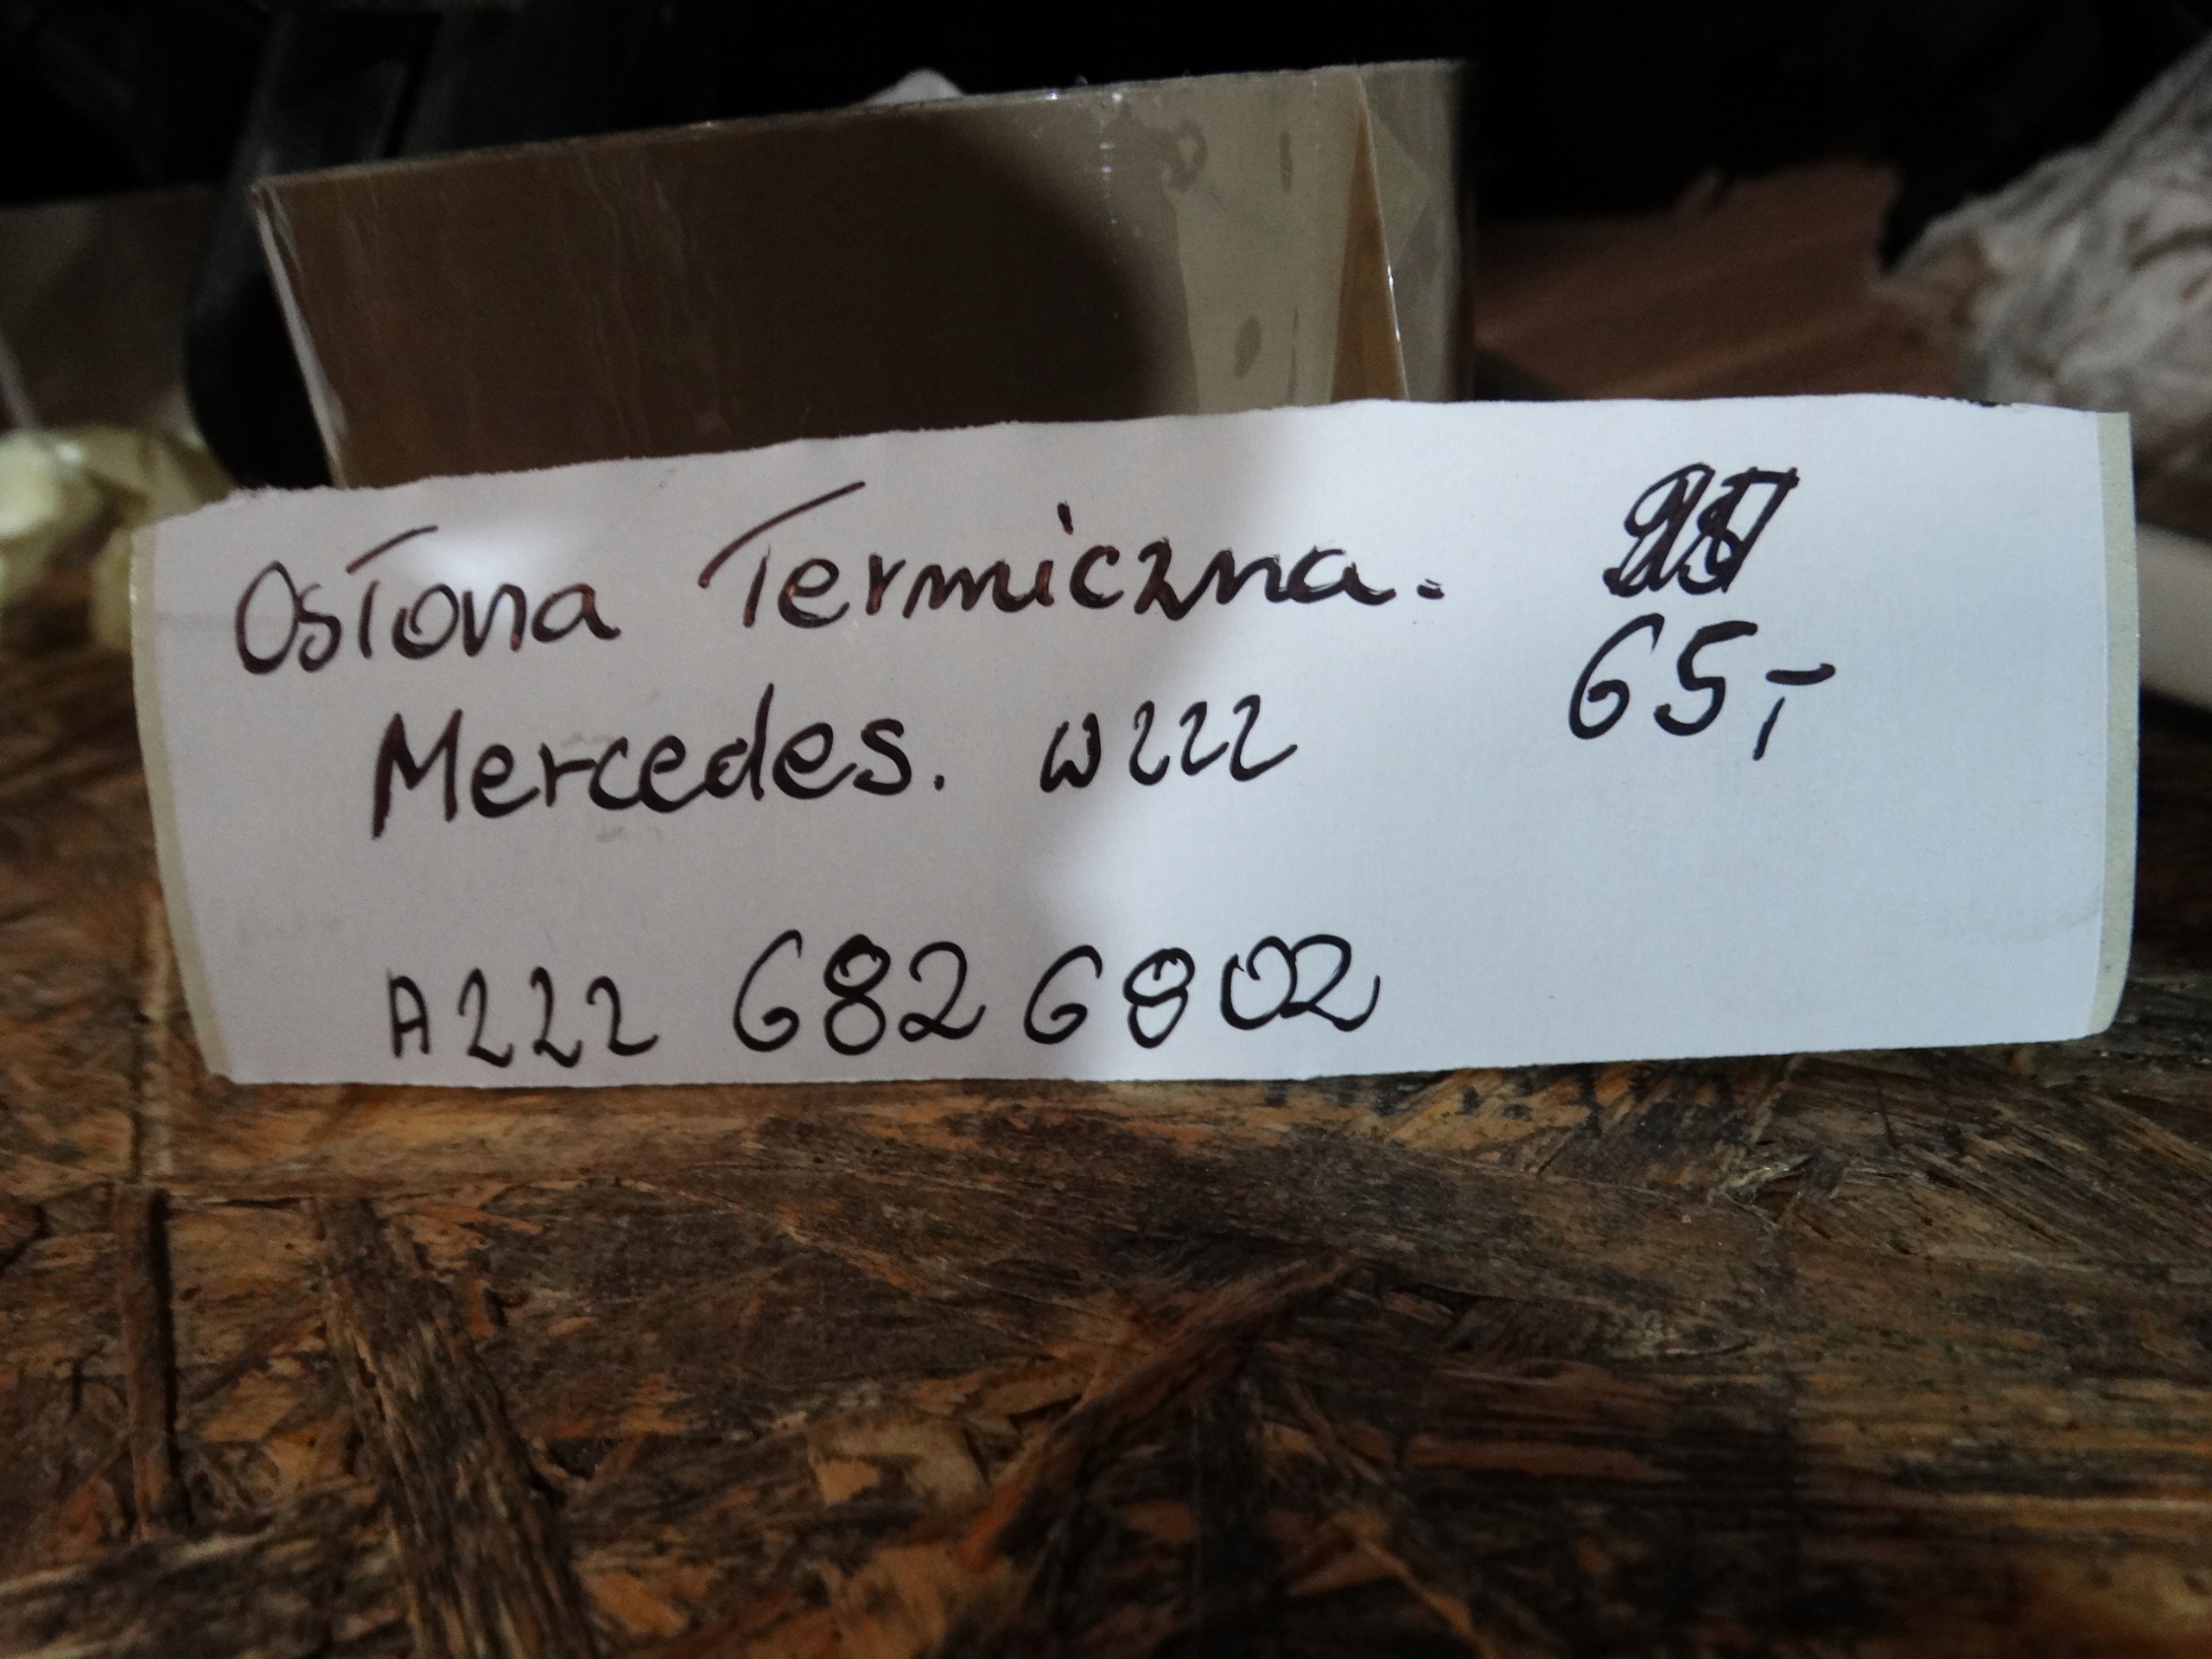 Osłona Termiczna.
65,-
Mercedes. W222
A222 682 6802